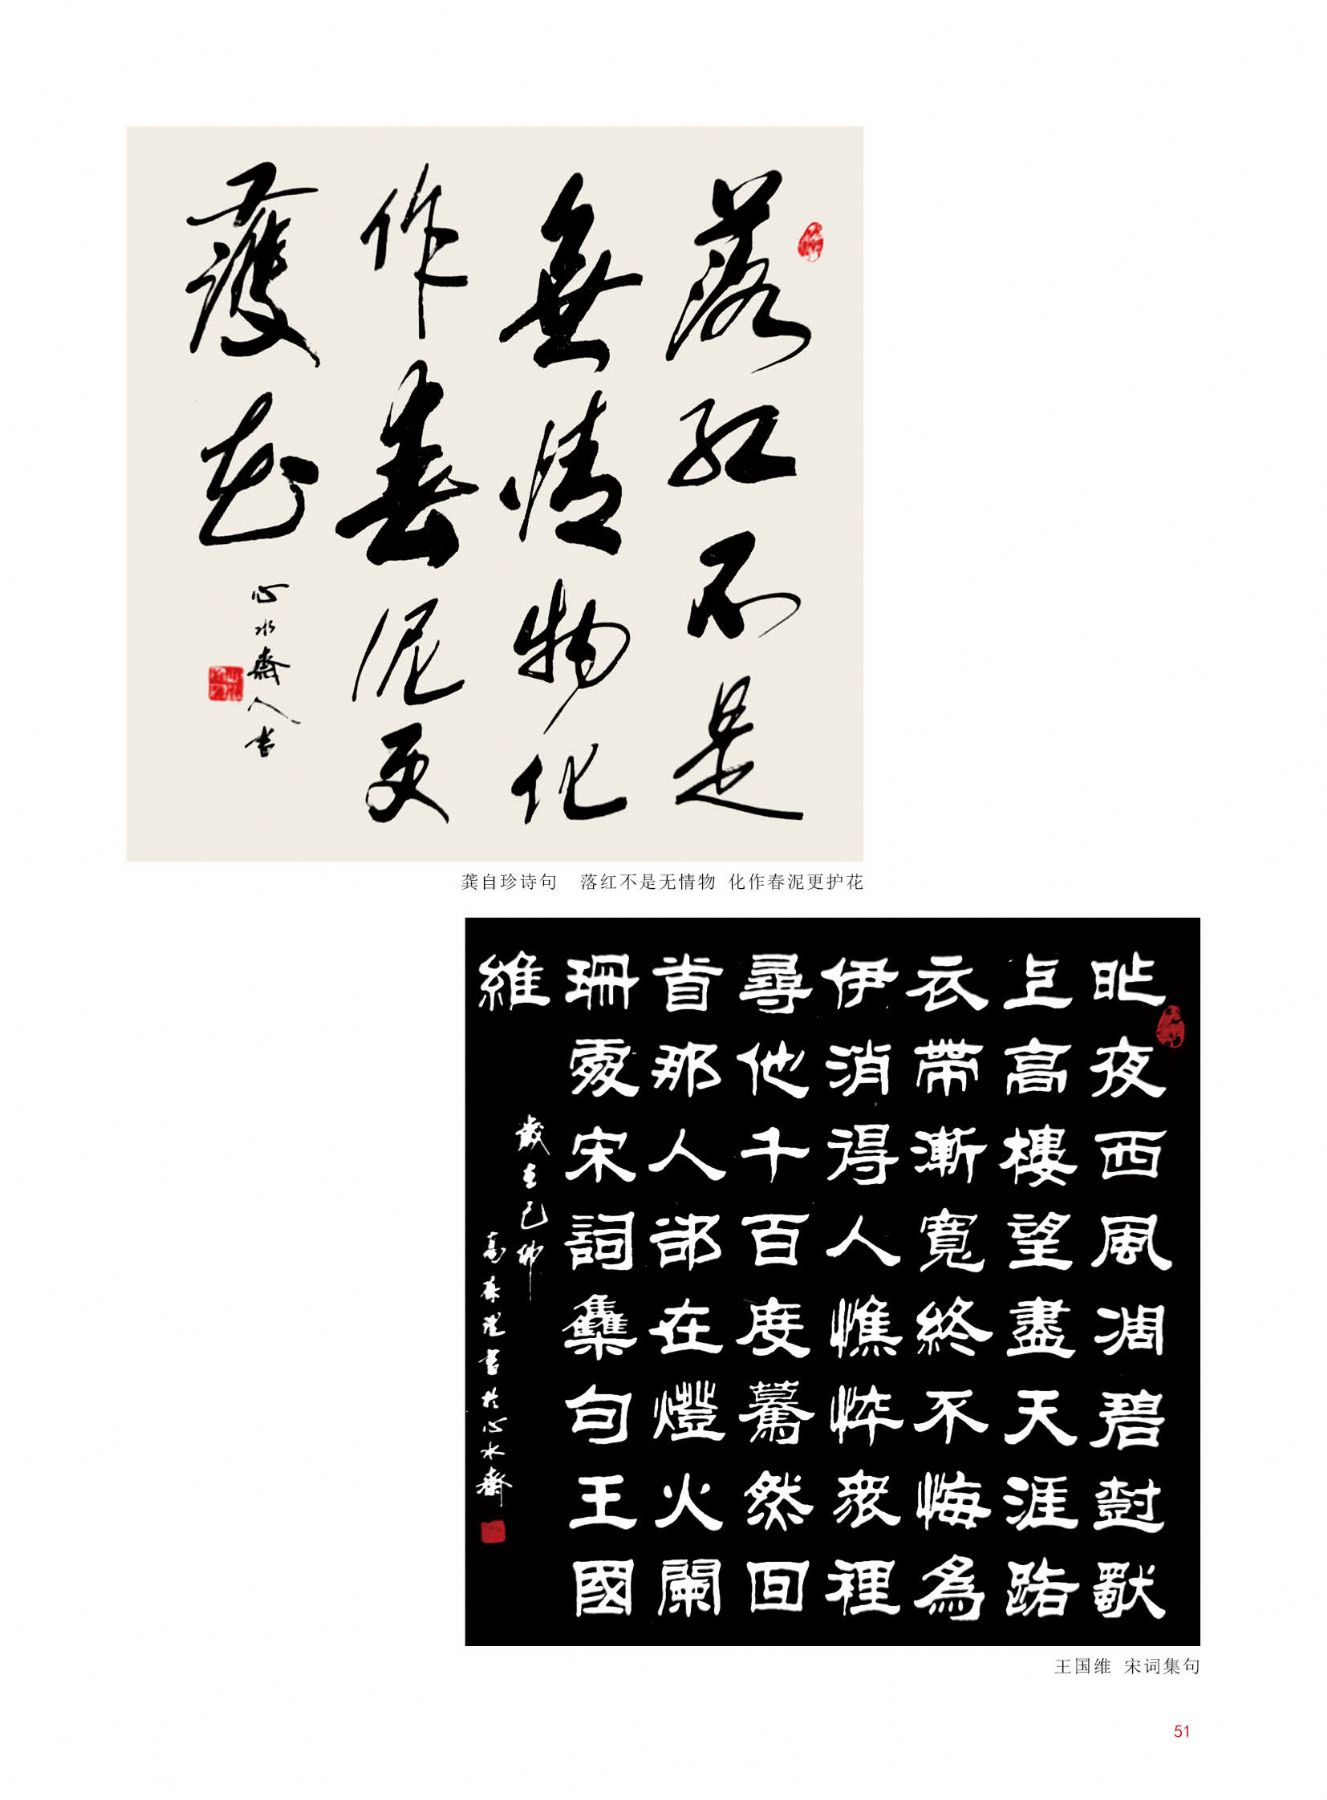 落红不是
無情物化
作春泥更
護花
心水齋人书
龚自珍诗句 落红不是无情物 化作春泥更护花
昨夜西風凋碧樹獨
上高樓望盡天涯路
衣帶漸寬終不悔為
伊消得人憔悴衆裡
尋他千百度驀然回
首那人卻在燈火闌
珊處宋詞集句王國
維
歲在己卯
書於心水齋
王国维 宋词集句
51